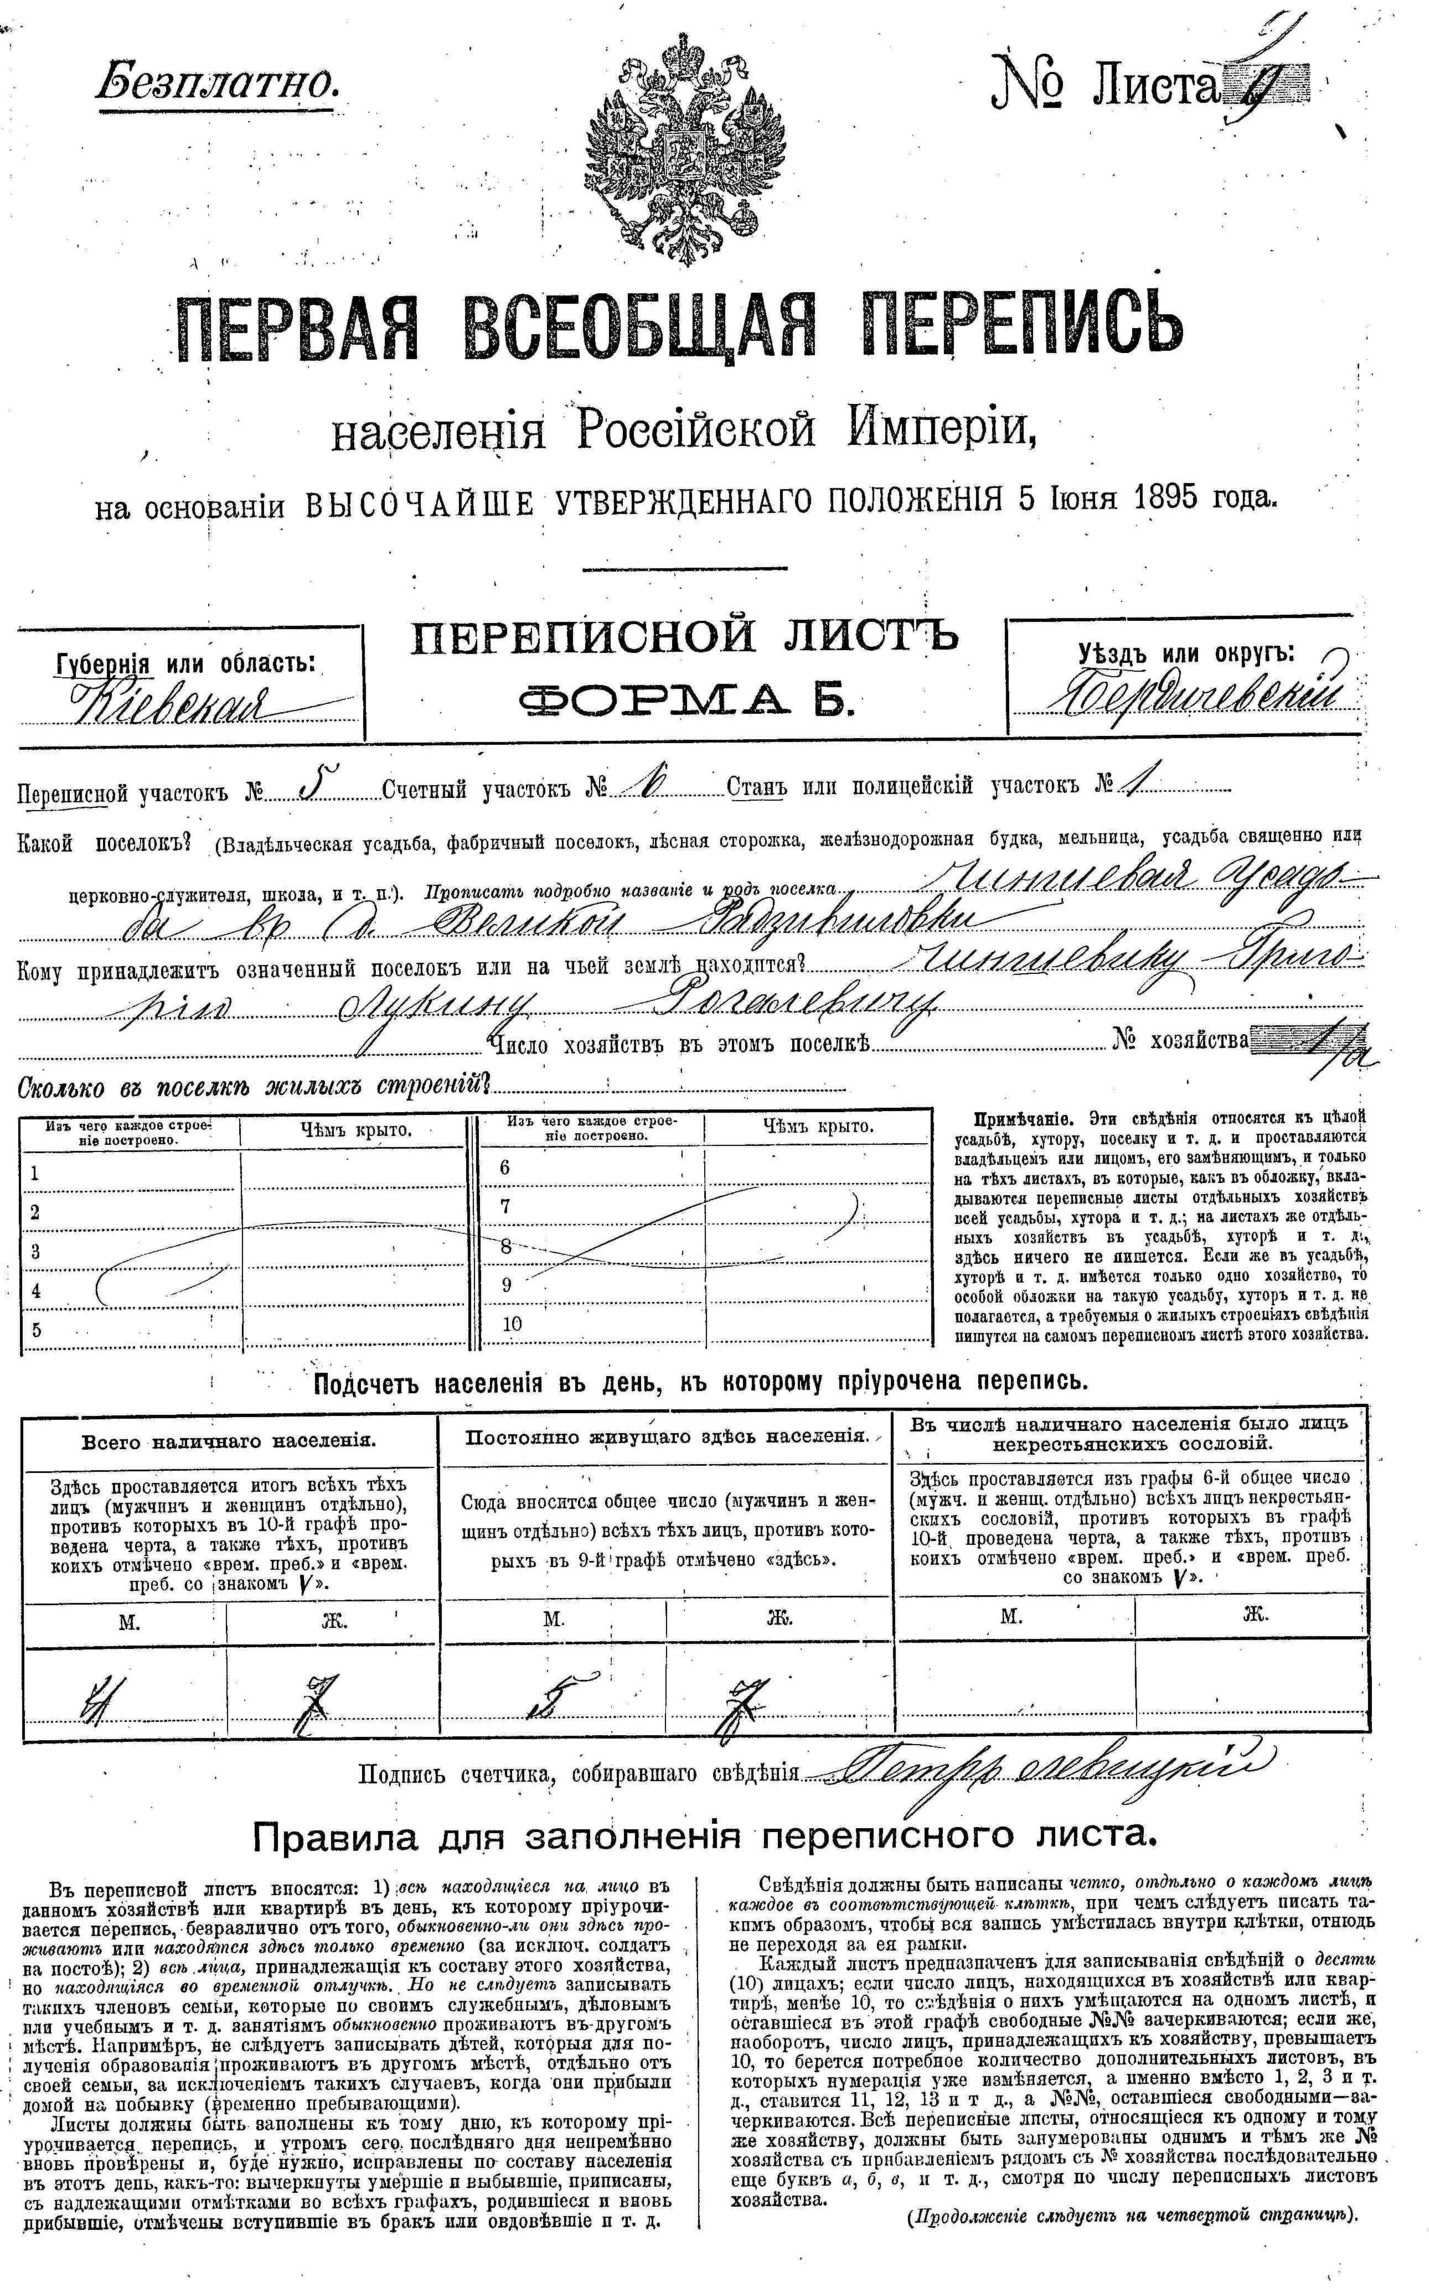 Безплатно.
№ Листа 9
ПЕРВАЯ ВСЕОБЩАЯ ПЕРЕПИСЬ
населенія Россійской Имперіи,
на основаніи ВЫСОЧАЙШЕ УТВЕРЖДЕННАГО ПОЛОЖЕНІЯ 5 Іюня 1895 года.
ПЕРЕПИСНОЙ ЛИСТЪ
ФОРМА Б.
Губернія или область:
Кіевская
Уѣздъ или округъ:
Бердичевскій
Переписной участокъ № 5 Счетный участокъ № 6 Станъ или полицейскій участокъ № 1
Какой поселокъ? (Владѣльческая усадьба, фабричный поселокъ, лѣсная сторожка, желѣзнодорожная будка, мельница, усадьба священно или
церковно-служителя, школа, и т. п.). Прописать подробно названіе и родъ поселка Чиншевая Усадь-
ба въ д. Великой Радзивиловки
Кому принадлежитъ означенный поселокъ или на чьей землѣ находится? Чиншевику Григо
рію Лукину Рогалевичу
Число хозяйствъ въ этомъ поселкѣ № хозяйства 1/а
Сколько въ поселкѣ жилыхъ строеній?
Изъ чего каждое строе-
ніе построено.
Чѣмъ крыто.
Изъ чего каждое строе-
ніе построено.
Чѣмъ крыто.
1
2
3
4
5
6
7
8
9
10
Примѣчаніе. Эти свѣдѣнія относятся къ цѣлой
усадьбѣ, хутору, поселку и т. д. и проставляются
владѣльцемъ или лицомъ, его замѣняющимъ, и только
на тѣхъ листахъ, въ которые, какъ въ обложку, вкла-
дываются переписные листы отдѣльныхъ хозяйствъ
всей усадьбы, хутора и т. д.; на листахъ же отдѣль-
ныхъ хозяйствъ въ усадьбѣ, хуторѣ и т. д.,
здѣсь ничего не пишется. Если же въ усадьбѣ,
хуторѣ и т. д. имѣется только одно хозяйство, то
особой обложки на такую усадьбу, хуторъ и т. д. не
полагается, а требуемыя о жилыхъ строеніяхъ свѣдѣнія
пишутся на самомъ переписномъ листѣ этого хозяйства.
Подсчетъ населенія въ день, къ которому пріурочена перепись.
Всего наличнаго населенія.
Здѣсь проставляется итогъ всѣхъ тѣхъ
лицъ (мужчинъ и женщинъ отдѣльно),
противъ которыхъ въ 10-й графѣ про-
ведена черта, а также тѣхъ, противъ
коихъ отмѣчено «врем. преб.» и «врем.
преб. со знакомъ V».
М. Ж.
4 7
Постоянно живущаго здѣсь населенія.
Сюда вносится общее число (мужчинъ и жен-
щинъ отдѣльно) всѣхъ тѣхъ лицъ, противъ кото-
рыхъ въ 9-й графѣ отмѣчено «здѣсь».
М. Ж.
5 7
Въ числѣ наличнаго населенія было лицъ
некрестьянскихъ сословій.
Здѣсь проставляется изъ графы 6-й общее число
(мужч. и женщ. отдѣльно) всѣхъ лицъ некрестьян-
скихъ сословій, противъ которыхъ въ графѣ
10-й проведена черта, а также тѣхъ, противъ
коихъ отмѣчено «врем. преб.» и «врем. преб.
со знакомъ V».
М. Ж.
Подпись счетчика, собиравшаго свѣдѣнія Петръ Левицкій
Правила для заполненія переписного листа.
Въ переписной листъ вносятся: 1) всѣ находящіеся на лицо въ
данномъ хозяйствѣ или квартирѣ въ день, къ которому пріурочи-
вается перепись, безразлично отъ того, обыкновенно-ли они здѣсь про-
живаютъ или находятся здѣсь только временно (за исключ. солдатъ
на постоѣ); 2) всѣ лица, принадлежащія къ составу этого хозяйства,
но находящіяся во временной отлучкѣ. Но не слѣдуетъ записывать
такихъ членовъ семьи, которые по своимъ служебнымъ, дѣловымъ
или учебнымъ и т. д. занятіямъ обыкновенно проживаютъ въ другомъ
мѣстѣ. Напримѣръ, не слѣдуетъ записывать дѣтей, которыя для по-
лученія образованія проживаютъ въ другомъ мѣстѣ, отдѣльно отъ
своей семьи, за исключеніемъ такихъ случаевъ, когда они прибыли
домой на побывку (временно пребывающими).
Листы должны быть заполнены къ тому дню, къ которому прі-
урочивается перепись, и утромъ сего послѣдняго дня непремѣнно
вновь провѣрены и, буде нужно, исправлены по составу населенія
въ этотъ день, какъ-то: вычеркнуты умершіе и выбывшіе, приписаны,
съ надлежащими отмѣтками во всѣхъ графахъ, родившіеся и вновь
прибывшіе, отмѣчены вступившіе въ бракъ или овдовѣвшіе и т. д.
Свѣдѣнія должны быть написаны четко, отдѣльно о каждомъ лицѣ
каждое въ соотвѣтствующей клѣткѣ, при чемъ слѣдуетъ писать та-
кимъ образомъ, чтобы вся запись умѣстилась внутри клѣтки, отнюдь
не переходя за ея рамки.
Каждый листъ предназначенъ для записыванія свѣдѣній о десяти
(10) лицахъ; если число лицъ, находящихся въ хозяйствѣ или квар-
тирѣ, менѣе 10, то свѣдѣнія о нихъ умѣщаются на одномъ листѣ, и
оставшіеся въ этой графѣ свободные №№ зачеркиваются; если же,
наоборотъ, число лицъ, принадлежащихъ къ хозяйству, превышаетъ
10, то берется потребное количество дополнительныхъ листовъ, въ
которыхъ нумерація уже измѣняется, а именно вмѣсто 1, 2, 3 и т.
д., ставится 11, 12, 13 и т д., а №№, оставшіеся свободными—за-
черкиваются. Всѣ переписные листы, относящіеся къ одному и тому
же хозяйству, должны быть занумерованы однимъ и тѣмъ же №
хозяйства съ прибавленіемъ рядомъ съ № хозяйства послѣдовательно
еще буквъ а, б, в, и т. д., смотря по числу переписныхъ листовъ
хозяйства.
(Продолженіе слѣдуетъ на четвертой страницѣ).